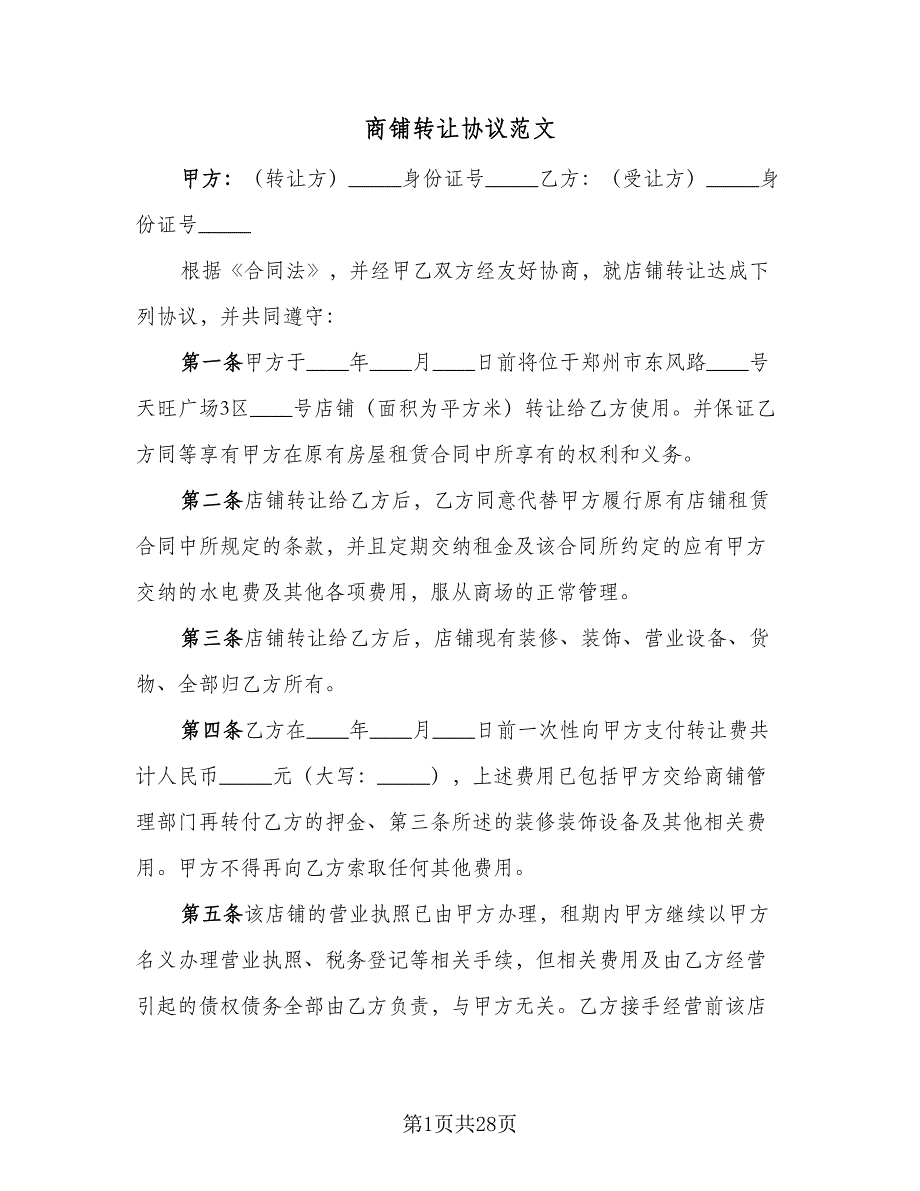 商铺转让协议范文
甲方：（转让方）_____身份证号_____乙方：（受让方）_____身
份证号_____
根据《合同法》，并经甲乙双方经友好协商，就店铺转让达成下
列协议，并共同遵守：
第一条甲方于____年____月____日前将位于郑州市东风路____号
天旺广场3区____号店铺（面积为平方米）转让给乙方使用。并保证乙
方同等享有甲方在原有房屋租赁合同中所享有的权利和义务。
第二条店铺转让给乙方后，乙方同意代替甲方履行原有店铺租赁
合同中所规定的条款，并且定期交纳租金及该合同所约定的应有甲方
交纳的水电费及其他各项费用，服从商场的正常管理。
第三条店铺转让给乙方后，店铺现有装修、装饰、营业设备、货
物、全部归乙方所有。
第四条乙方在____年____月____日前一次性向甲方支付转让费共
计人民币_____元（大写：_____），上述费用已包括甲方交给商铺管
理部门再转付乙方的押金、第三条所述的装修装饰设备及其他相关费
用。甲方不得再向乙方索取任何其他费用。
第五条该店铺的营业执照已由甲方办理，租期内甲方继续以甲方
名义办理营业执照、税务登记等相关手续，但相关费用及由乙方经营
引起的债权债务全部由乙方负责，与甲方无关。乙方接手经营前该店
第1页共28页